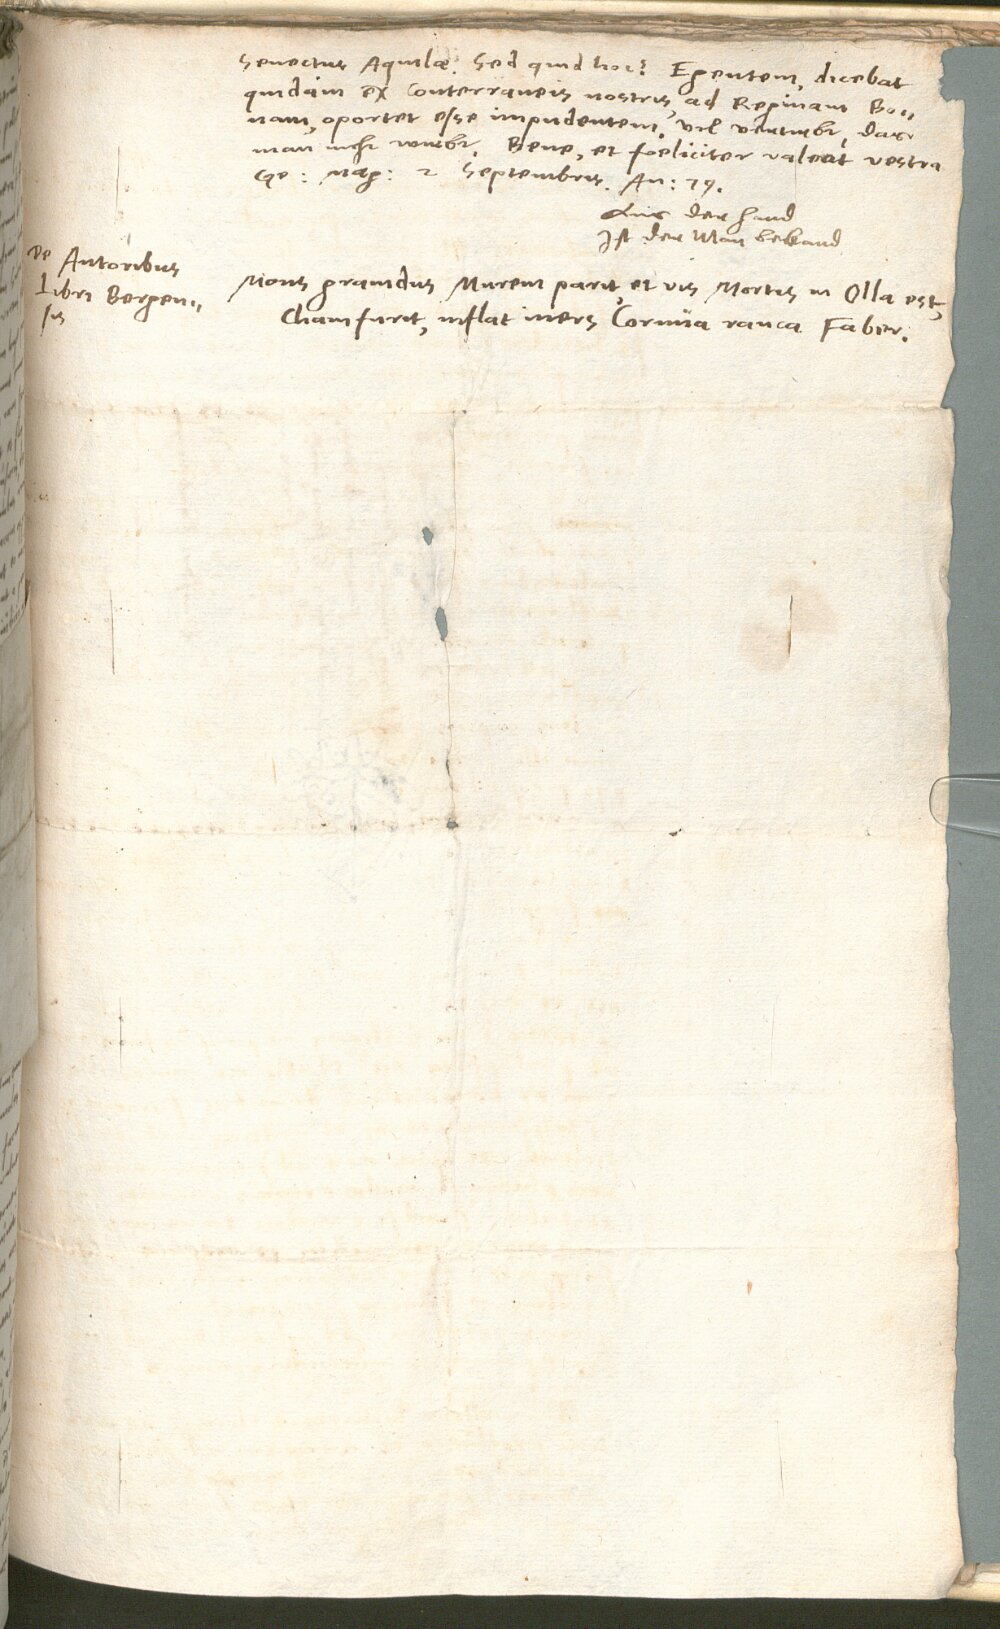 Senectus Aquilæ. Sed quid hoc? Egentem, dicebat
quidam ex Conterraneis nostris, ad Reginam Bo„
nam, oportet esse impudentem, vil
man nicht wirbt. Bene, et foeliciter valeat vestra
Mag: 2 Septembris. An: 79.
Aus der hand
Ist der Man bekand
De Autoribus
Libri Bergen„
sis
Mons gravidus Murem parit, et vis Mortis in Olla est,
Cham furit, inflat iners Cornua rauca Faber.